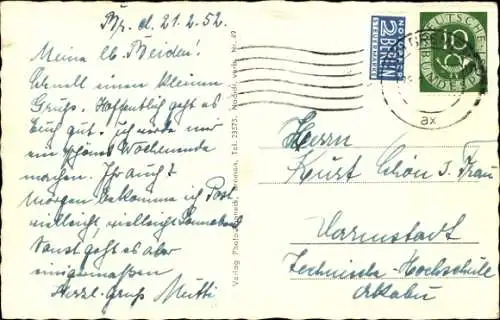 d. 21.2.52.
Meine lb. Beiden!
Schnell einen kleinen
Gruß. Hoffentlich geht es
Euch gut. ich werde mir
ein schönes Wochenende
machen. Ihr auch?
Morgen bekomme ich Post
vielleicht, vielleicht Sonnabend
Sonst geht es aber
einigermaßen
Herzl. Gruß Mutti
Verlag Photo
Bremen, Tel. 23575. Nachdr. verb. Nr. 49
NOTOPFER
2 BERLIN
STEUERMARKE
DEUTSCHE
10
BUNDESPOST
ax
Herrn
Kurt Schön u. Frau
Darmstadt
Technische-Hochschule